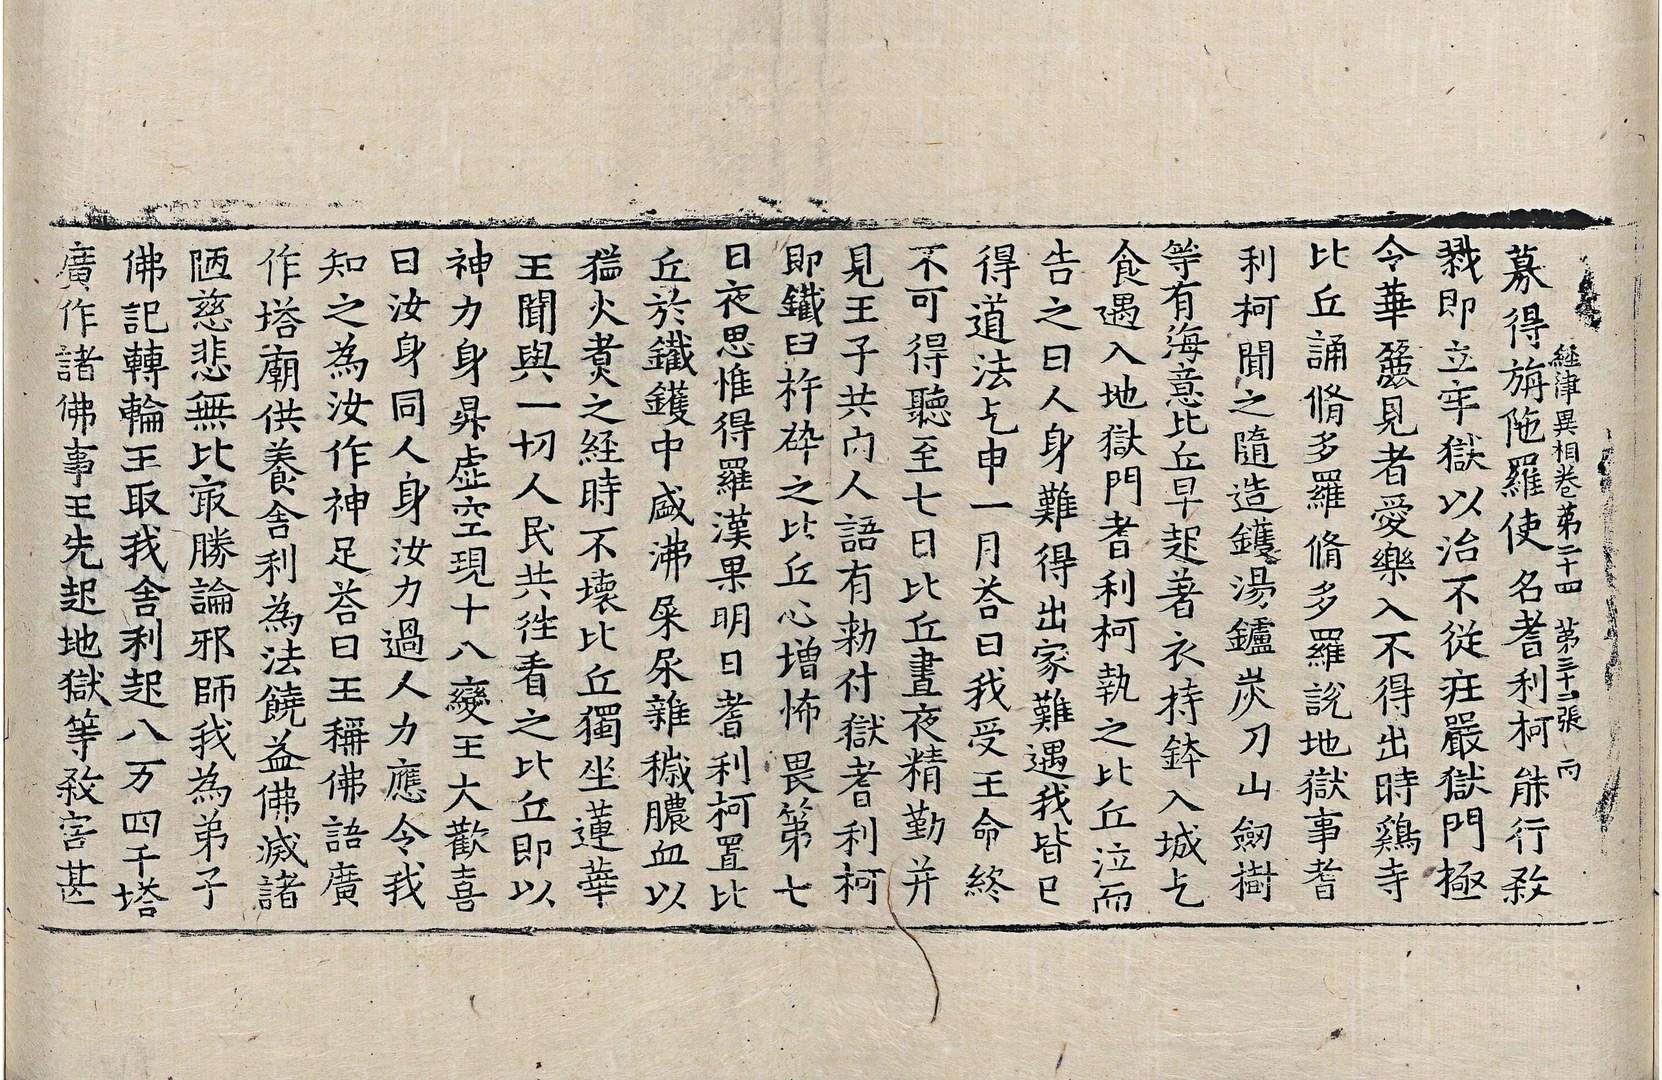 經津異相卷第二十四 第三十二張 丙
募得旃陁羅使名耆利柯能行煞
戮即立牢獄以治不從庄嚴獄門極
令華麗見者愛樂入不得出時鷄寺
比丘誦脩多羅脩多羅說地獄事耆
利柯聞之隨造鑊湯鑪炭刀山劒樹
等有海意比丘早起著衣持鉢入城乞
食遇入地獄門耆利柯執之比丘泣而
告之曰人身難得出家難遇我皆已
得道法乞申一月荅曰我受王命終
不可得聽至七日比丘晝夜精勤并
見王子共內人語有勑付獄耆利柯
即鐵臼杵砕之比丘心増怖畏第七
日夜思惟得羅漢果明日耆利柯置比
丘於鐵鑊中盛沸屎尿雜穢膿血以
猛火煑之経時不壞比丘獨坐蓮華
王聞與一切人民共徃看之比丘即以
神力身昇虛空現十八變王大歡喜
曰汝身同人身汝力過人力應令我
知之為汝作神足荅曰王稱佛語廣
作塔廟供養舍利為法饒益佛滅諸
陋慈悲無比㝡勝論邪師我為弟子
佛記轉輪王取我舍利起八万四千塔
廣作諸佛事王先起地獄等煞害甚